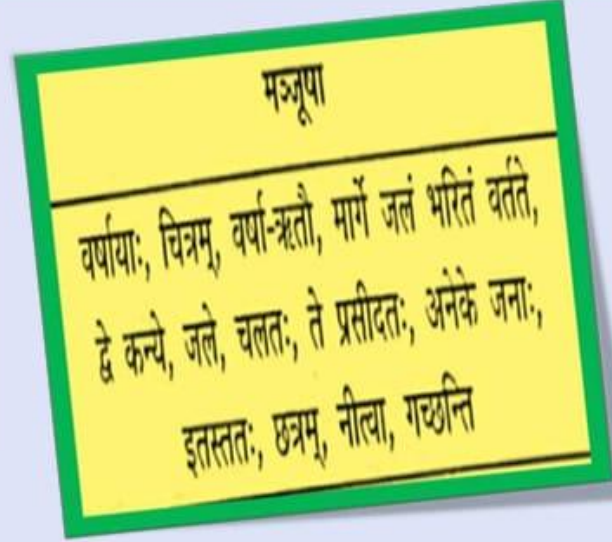 मञ्जूषा
वर्षायाः, चित्रम्, वर्षा-ऋतौ, मार्गे जलं भरितं वर्तते,
द्वे कन्ये, जले, चलतः, ते प्रसीदतः, अनेके जनाः,
इतस्ततः, छत्रम्, नीत्वा, गच्छन्ति